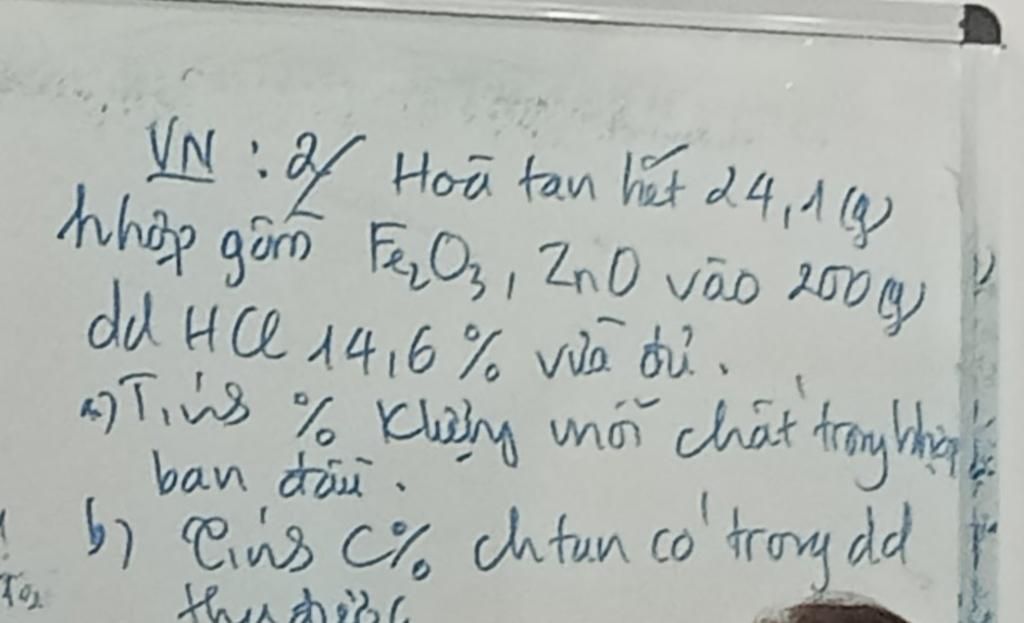 VN : 2/ Hoà tan hết 24,1 (g)
hhợp gồm Fe₂O₃, ZnO vào 200 (g)
dd HCl 14,6 % vừa đủ.
a) Tính % klượng mỗi chất trong hhợp
ban đầu.
b) Tính C% ch tan có trong dd
thu được